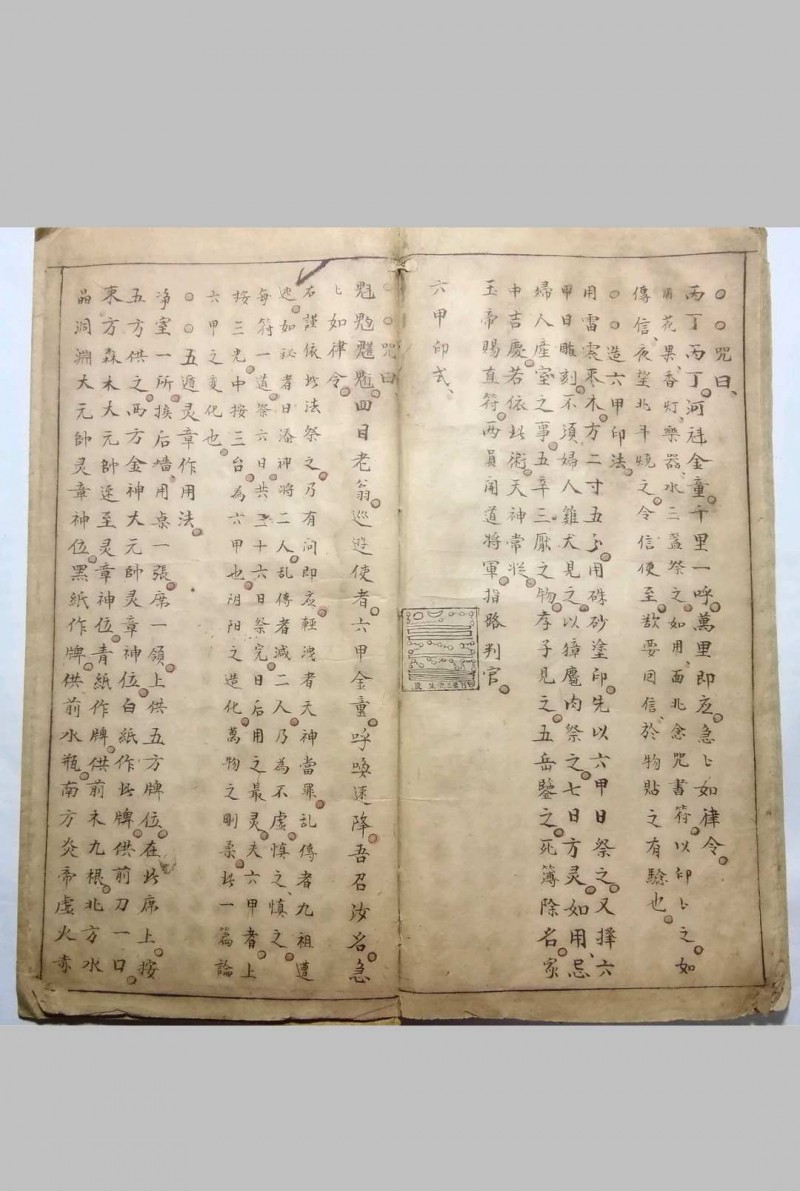 咒曰、
丙丁丙丁。河 金童。千里一呼。萬里即 。急ヒ如律令。
用花果、香灯、樂器、水三盞祭之。如用、面北念咒書符。以印ヒ之。如
傳信、夜望北斗燒之。令信便至。 要回信、於物貼之有驗也。
造六甲印法。
用雷震 木。方二寸五分。用硃砂塗印。先以六甲日祭之。又擇六
甲日雕刻。不須婦人雞犬見之。以獐 肉祭之。七日方灵。如用、忌
婦人產室之事。五辛三厭之物。孝子見之。五岳鑒之。死簿除名。家
中吉慶。若依此術。天神常 。
玉帝賜直符。两員開道將軍。指路判官。
六甲印式、
咒曰、
魁 四目老翁。巡遊使者。六甲金童。呼喚速降。吾召汝名。急
ヒ如律令。
右謹依此法祭之。乃有問即 。輕洩者天神當罪。乱傳者九祖遭
。如祕者日添神將二人。乱傳者減二人。乃為不虛。慎之、慎之。
每符一道。祭六日。共三十六日祭完。日后用之最灵。夫六甲者。上
按三光。中按三台。為六甲也。阴阳之造化。萬物之剛柔。此一篇論
六甲之变化也。
五遁灵章作用法。
净室一所。挨后墻。用桌一張。席一領。上供五方牌位。在此席上。按
五方供之。西方金神大元帥灵章神位。白紙作此牌。供前刀一口。
東方森木大元帥 至灵章神位。青紙作牌。供前木九根。北方水
晶洞淵大元帥灵章神位。黑紙作牌。供前水瓶。南方炎帝虛火赤